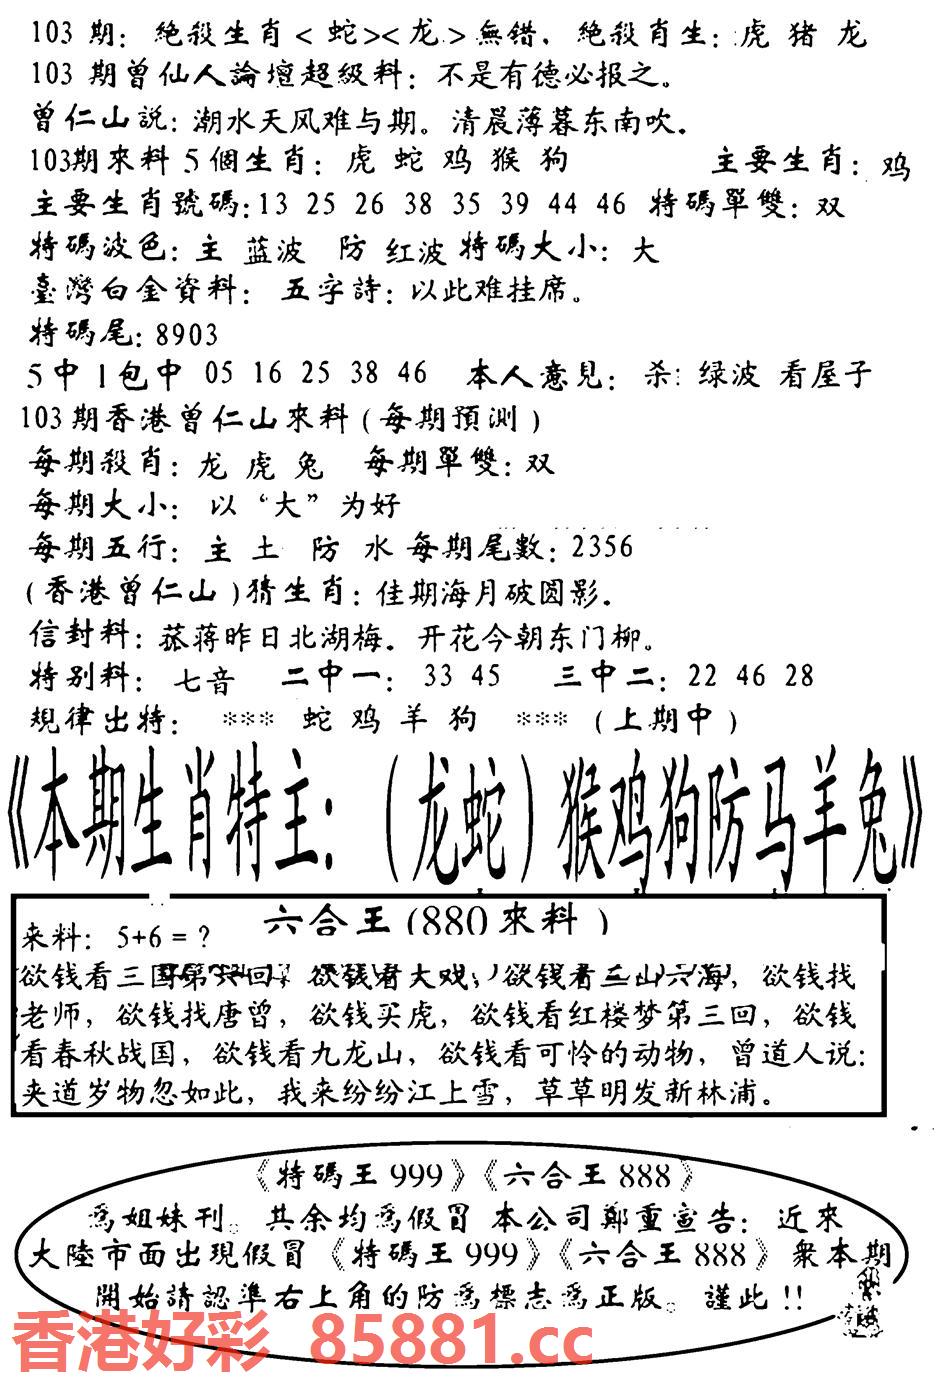 103 期: 絶殺生肖< 蛇><龙>無错. 絶殺肖生: 虎 猪 龙
103 期曾仙人論壇超級料: 不是有德必报之。
曾仁山説: 潮水天风难与期。清晨薄暮东南吹.
103期來料 5 個生肖: 虎 蛇 鸡 猴 狗 主要生肖: 鸡
主要生肖號碼:13 25 26 38 35 39 44 46 特碼單雙: 双
特碼波色: 主 蓝波 防 红波 特碼大小: 大
臺灣白金資料: 五字詩: 以此难挂席。
特碼尾: 8903
5 中 1 包中 05 16 25 38 46 本人意見: 杀: 绿波 看屋子
103 期香港曾仁山來料 ( 每期預測 )
每期殺肖: 龙 虎 兔 每期單雙: 双
每期大小: 以“大”为好
每期五行: 主 土 防 水 每期尾數: 2356
( 香港曾仁山 )猜生肖: 佳期海月破圆影.
信封料: 菰蒋昨日北湖梅. 开花今朝东门柳。
特别料: 七音 二中一: 33 45 三中二: 22 46 28
規律出特: *** 蛇 鸡 羊 狗 *** ( 上期中 )
《本期生肖特主: (龙蛇) 猴鸡狗防马羊兔》
六合王 (880 來料 )
来料: 5+6 = ?
欲钱看三国第六回, 欲钱看大戏, 欲钱看三山六海, 欲钱找
老师, 欲钱找唐曾, 欲钱买虎, 欲钱看红楼梦第三回, 欲钱
看春秋战国, 欲钱看九龙山, 欲钱看可怜的动物, 曾道人说:
夹道岁物忽如此, 我来纷纷江上雪, 草草明发新林浦。
《特碼王 999》《六合王 888》
爲姐妹刊。其余均爲假冒 本公司鄭重宣告: 近來
大陸市面出現假冒 《特碼王 999》《六合王 888》 衆本期
開始請認準右上角的防爲標志爲正版。謹此 !!
香港好彩 85881.cc